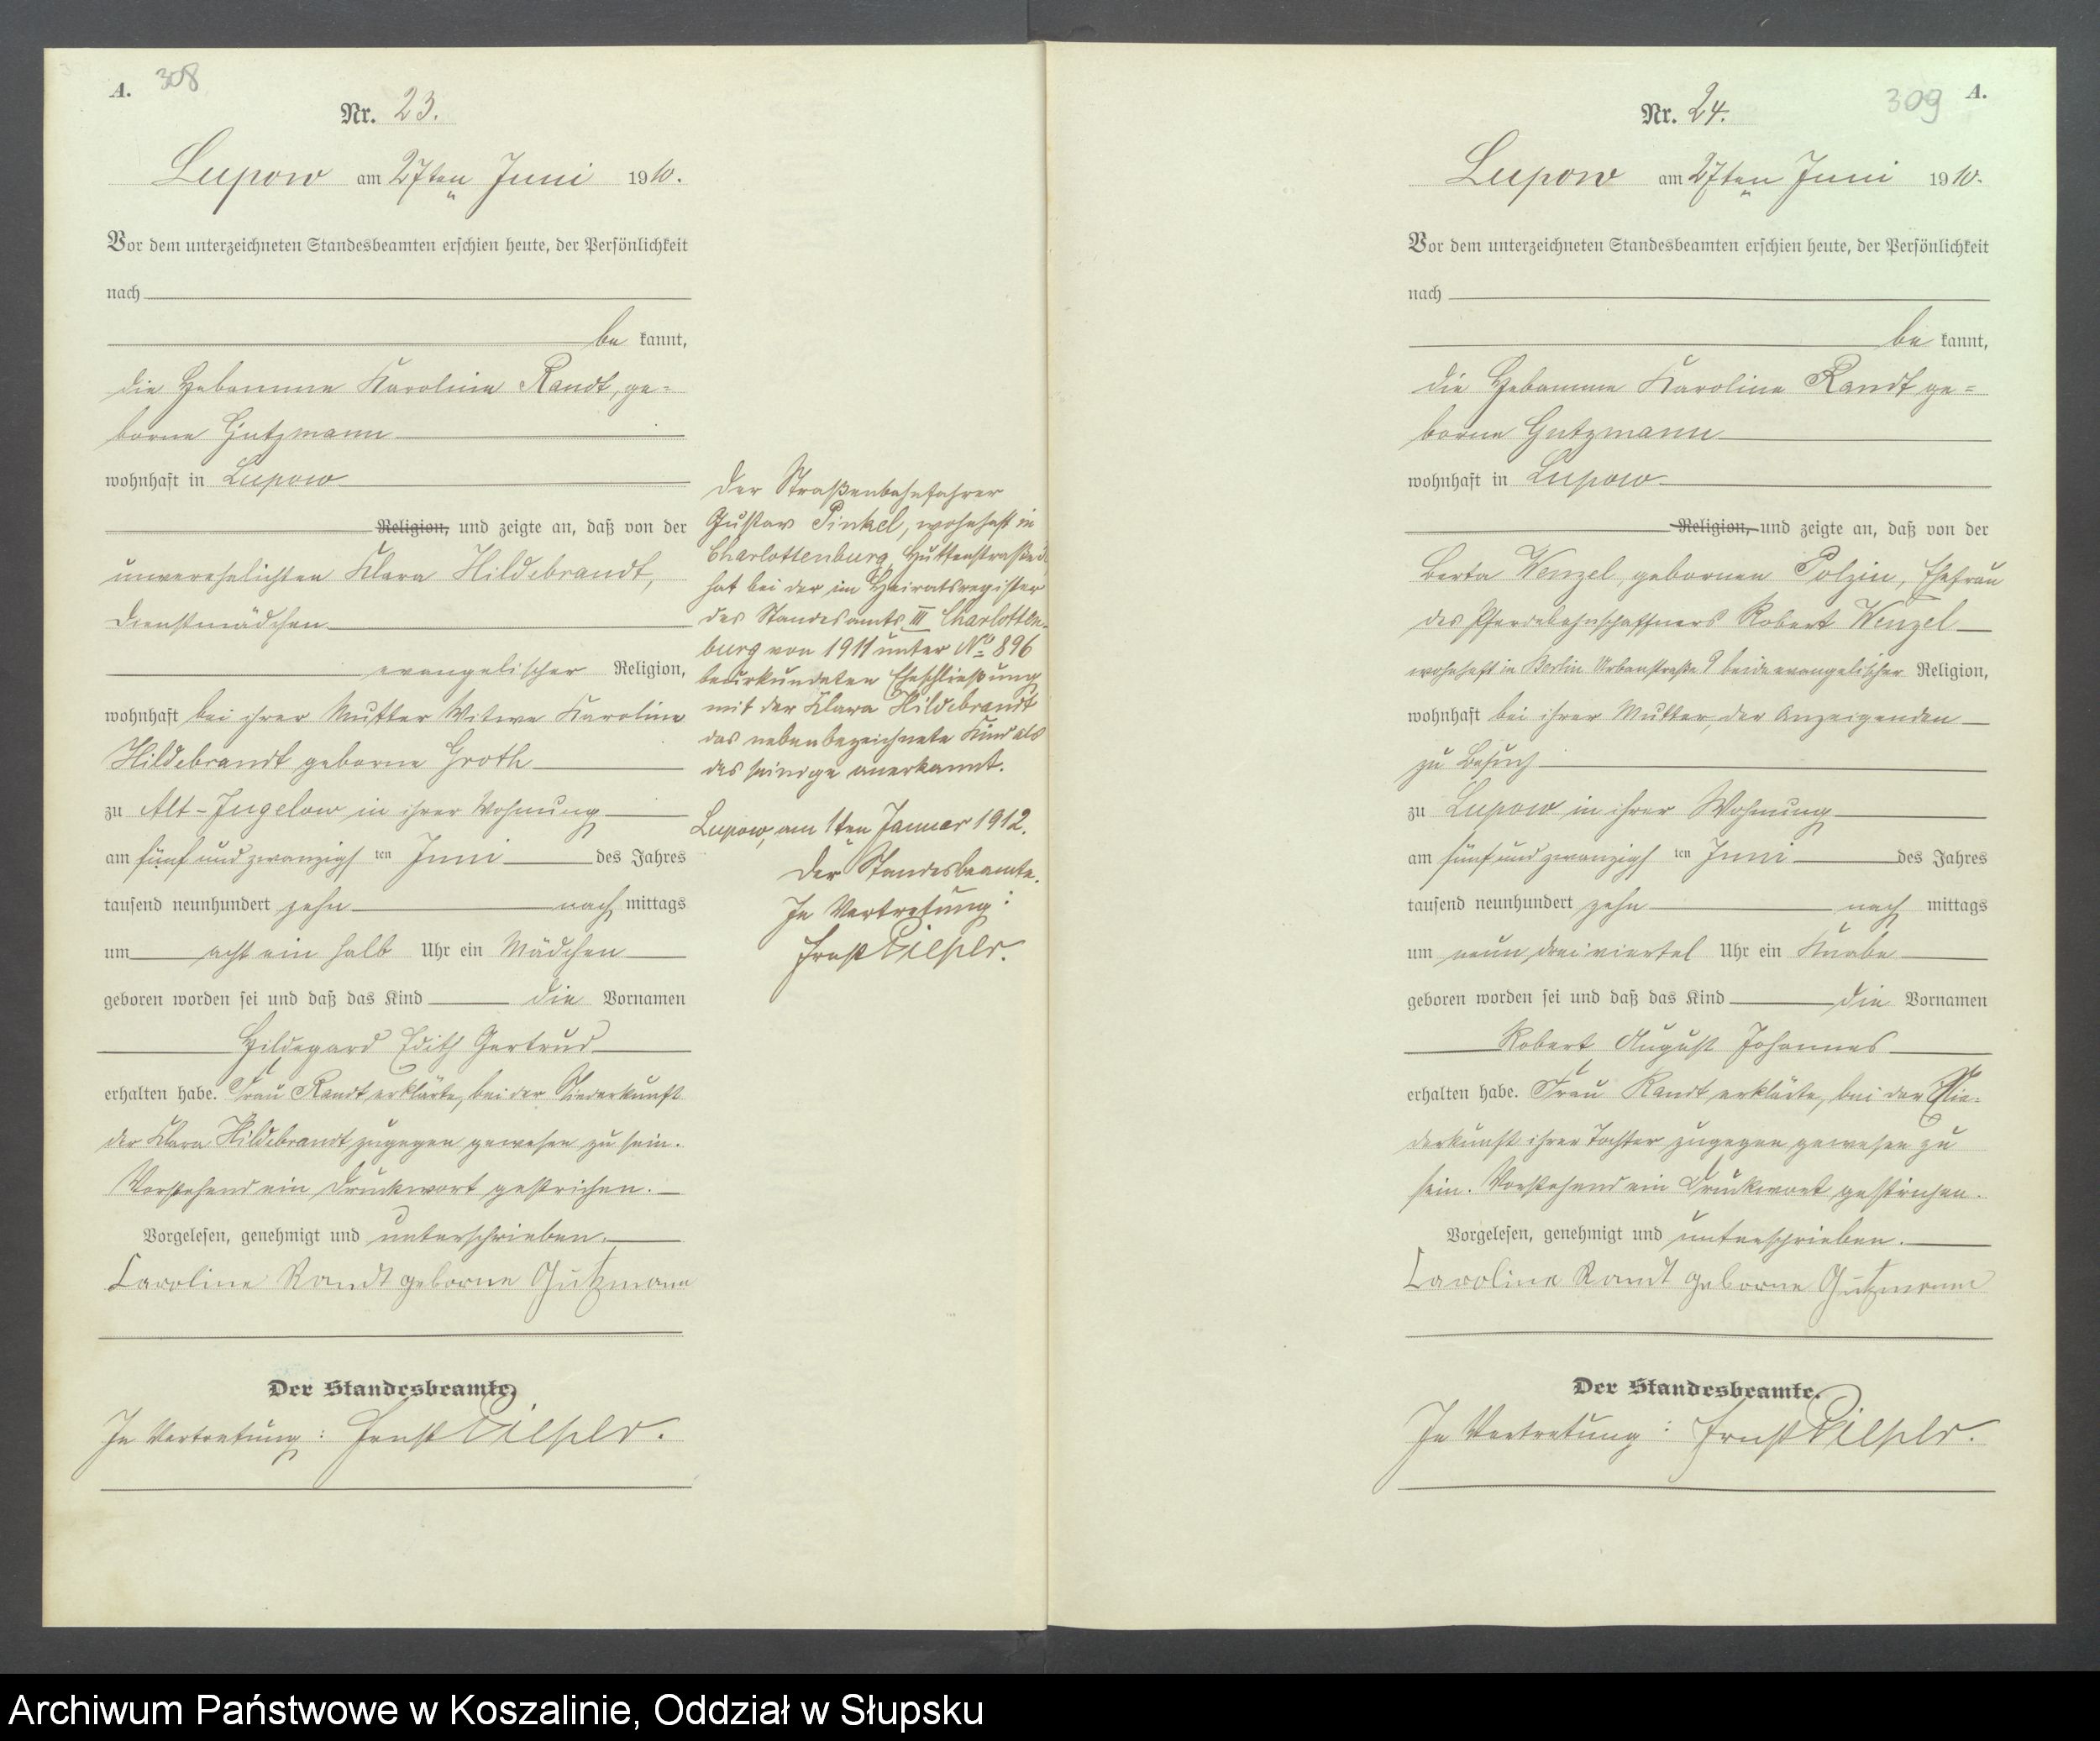 A. 308
Nr. 23.
Lupow am 27ten Juni 1910.
Vor dem unterzeichneten Standesbeamten erschien heute, der Persönlichkeit
nach
be kannt,
die Hebamme Karoline Randt, ge=
borne Gutzmann
wohnhaft in Lupow
Religion, und zeigte an, daß von der
unverehelichten Klara Hildebrandt,
Dienstmädchen
evangelischer Religion,
wohnhaft bei ihrer Mutter Witwe Karoline
Hildebrandt geborne Groth
zu Alt-Jugelow in ihrer Wohnung
am fünf und zwanzigsten Juni des Jahres
tausend neunhundert zehn nach mittags
um acht ein halb Uhr ein Mädchen
geboren worden sei und daß das Kind die Vornamen
Hildegard Edith Gertrud
erhalten habe. Frau Randt erklärte, bei der Niederkunft
der Klara Hildebrandt zugegen gewesen zu sein.
Vorstehend ein Druckwort gestrichen.
Vorgelesen, genehmigt und unterschrieben.
Caroline Randt geborne Gutzmann
Der Standesbeamte.
In Vertretung: Ernst
Der Straßenbahnfahrer
Gustav Pinkel, wohnhaft in
Charlottenburg, Huttenstraße
hat bei der im Heiratsregister
des Standesamts III Charlotten-
burg von 1911 unter No 896
beurkundeten Eheschließung
mit der Klara Hildebrandt
das nebenbezeichnete Kind als
das seinige anerkannt.
Lupow, am 1ten Januar 1912.
Der Standesbeamte.
In Vertretung:
Ernst
309 A.
Nr. 24.
Lupow am 27ten Juni 1910.
Vor dem unterzeichneten Standesbeamten erschien heute, der Persönlichkeit
nach
be kannt,
die Hebamme Karoline Randt ge=
borne Gutzmann
wohnhaft in Lupow
Religion, und zeigte an, daß von der
Berta Wenzel, gebornen Polzin, Ehefrau
des Pferdebahnschaffners Robert Wenzel
wohnhaft in Berlin Urbanstraße 9 beide evangelischer Religion,
wohnhaft bei ihrer Mutter, der Anzeigenden
zu Besuch
zu Lupow in ihrer Wohnung
am fünf und zwanzigsten Juni des Jahres
tausend neunhundert zehn nach mittags
um neun dreiviertel Uhr ein Knabe
geboren worden sei und daß das Kind die Vornamen
Robert August Johannes
erhalten habe. Frau Randt erklärte, bei der Nie-
derkunft ihrer Tochter zugegen gewesen zu
sein. Vorstehend ein Druckwort gestrichen.
Vorgelesen, genehmigt und unterschrieben.
Caroline Randt geborne Gutzmann
Der Standesbeamte.
In Vertretung: Ernst
Archiwum Państwowe w Koszalinie, Oddział w Słupsku